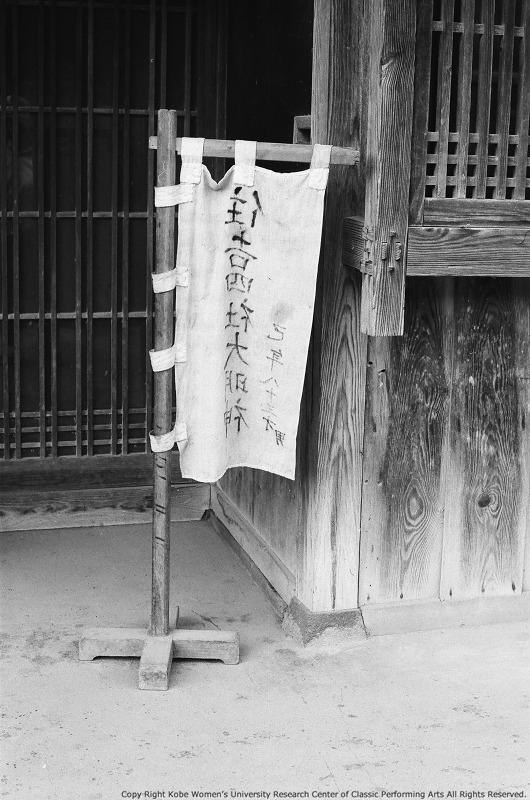 住吉四社大明神
巳年八十三才 男
Copy Right Kobe Women's University Research Center of Classic Performing Arts All Rights Reserved.